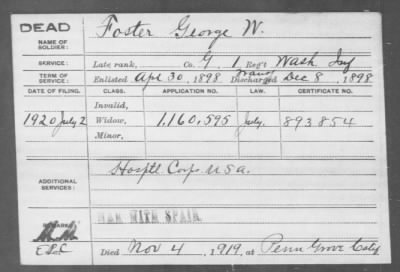 DEAD
NAME OF SOLDIER: Foster George W.
SERVICE: Late rank, Co. G, 1 Reg't Wash Inf
TERM OF SERVICE: Enlisted Apr 30, 1898 Trans Discharged Dec 8, 1898
DATE OF FILING. CLASS. APPLICATION NO. LAW. CERTIFICATE NO.
Invalid,
1920 July 2 Widow, 1,160,595 July. 893854
Minor,
ADDITIONAL SERVICES: Hosptl Corps U.S.A.
WAR WITH SPAIN
Died Nov 4, 1919, at Penn Grove Calif